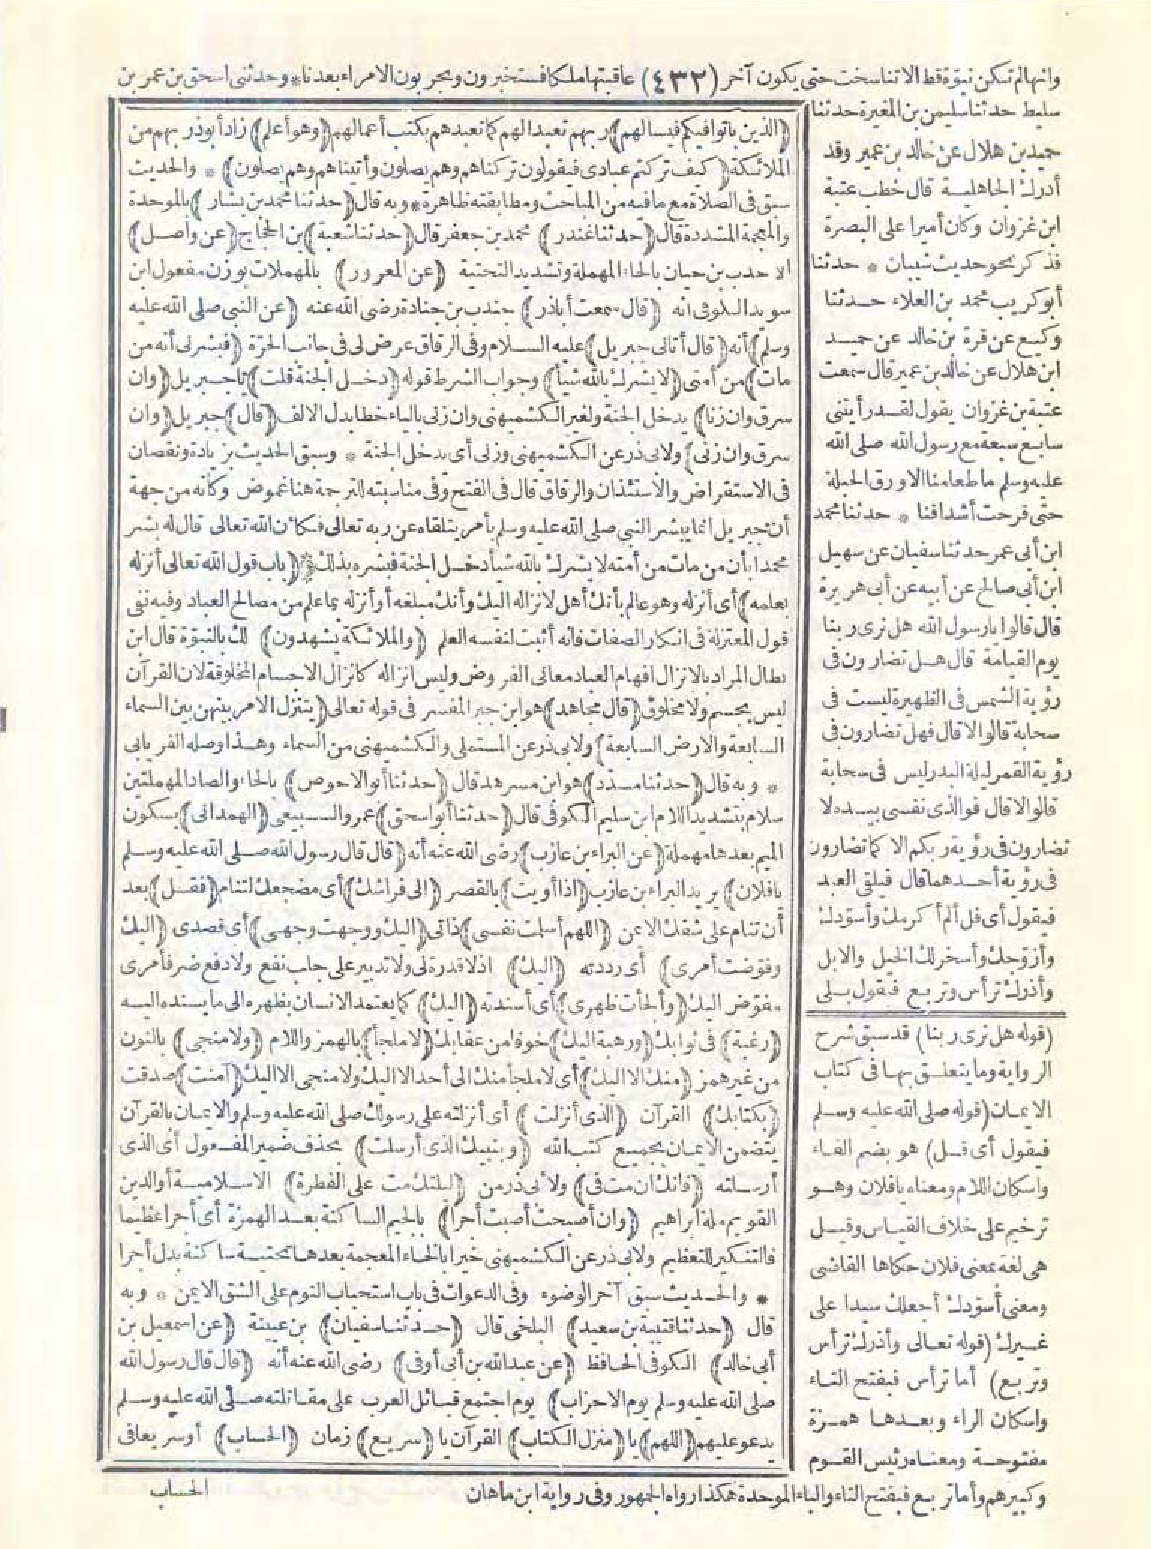 وانها لم تكن نبوة قط الا تناسخت حتى يكون آخر (٤٣٢) عاقبتها ملكا فستخبرون وتجربون الامراء بعدنا * وحدثنى اسحق بن عمر بن
سليط حدثنا سليمن بن المغيرة حدثنا
حميد بن هلال عن خالد بن عمير وقد
أدرك الجاهلية قال خطب عتبة
ابن غزوان وكان أميرا على البصرة
فذكر نحو حديث شيبان * حدثنا
أبو كريب محمد بن العلاء حدثنا
وكيع عن قرة بن خالد عن حميد
ابن هلال عن خالد بن عمير قال سمعت
عتبة بن غزوان يقول لقد رأيتنى
سابع سبعة مع رسول الله صلى الله
عليه وسلم ما طعامنا الا ورق الحبلة
حتى قرحت أشداقنا * حدثنا محمد
ابن أبى عمر حدثنا سفيان عن سهيل
ابن أبى صالح عن أبيه عن أبى هريرة
قال قالوا يا رسول الله هل نرى ربنا
يوم القيامة قال هل تضارون فى
رؤية الشمس فى الظهيرة ليست فى
سحابة قالوا لا قال فهل تضارون فى
رؤية القمر ليلة البدر ليس فى سحابة
قالوا لا قال فوالذى نفسى بيده لا
تضارون فى رؤية ربكم الا كما تضارون
فى رؤية أحدهما قال فيلقى العبد
فيقول أى فل ألم أكرمك وأسودك
وأزوجك وأسخر لك الخيل والابل
وأذرك ترأس وتربع فيقول بلى
(قوله هل نرى ربنا) قد سبق شرح
الرواية وما يتعلق بها فى كتاب
الايمان (قوله صلى الله عليه وسلم
فيقول أى فل) هو بضم الفاء
واسكان اللام ومعناه يا فلان وهو
ترخيم على خلاف القياس وقيل
هى لغة بمعنى فلان حكاها القاضى
ومعنى أسودك أجعلك سيدا على
غيرك (قوله تعالى وأذرك ترأس
وتربع) أما ترأس فبفتح التاء
واسكان الراء وبعدها همزة
مفتوحة ومعناه رئيس القوم
وكبيرهم وأما تربع فبفتح التاء والباء الموحدة هكذا رواه الجمهور وفى رواية ابن ماهان
(الذين باتوا فيكم فيسألهم) ربهم تعبدا لهم كما تعبدهم بكتب أعمالهم (وهو أعلم) زاد أبو ذر بهم من
الملائكة (كيف تركتم عبادى فيقولون تركناهم وهم يصلون وأتيناهم وهم يصلون) * والحديث
سبق فى الصلاة مع ما فيه من المباحث ومطابقته ظاهرة * وبه قال (حدثنا محمد بن بشار) بالموحدة
والمعجمة المشددة قال (حدثنا غندر) محمد بن جعفر قال (حدثنا شعبة) بن الحجاج (عن واصل)
الاحدب بن حيان بالحاء المهملة وتشديد التحتية (عن المعرور) بالمهملات بوزن مفعول ابن
سويد الكوفى انه (قال سمعت أبا ذر) جندب بن جنادة رضى الله عنه (عن النبى صلى الله عليه
وسلم) أنه (قال أتانى جبريل) عليه السلام وفى الرقاق عرض لى فى جانب الحرة (فبشرنى أنه من
مات) من أمتى (لا يشرك بالله شيأ) وجواب الشرط قوله (دخل الجنة قلت) يا جبريل (وان
سرق وان زنا) يدخل الجنة ولغير الكشميهنى وان زنى بالياء خطا بدل الالف (قال) جبريل (وان
سرق وان زنى) ولابى ذر عن الكشميهنى وزنى أى يدخل الجنة * وسبق الحديث بزيادة ونقصان
فى الاستقراض والاستئذان والرقاق قال فى الفتح وفى مناسبته للترجمة هنا غموض وكأنه من جهة
أن جبريل انما يبشر النبى صلى الله عليه وسلم بأمر يتلقاه عن ربه تعالى فكأن الله تعالى قال له بشر
محمدا بأن من مات من أمته لا يشرك بالله شيأ دخل الجنة فبشره بذلك * (باب قول الله تعالى أنزله
بعلمه) أى أنزله وهو عالم بأنك أهل لانزاله اليك وأنك مبلغه أو أنزله بما علم من مصالح العباد وفيه نفى
قول المعتزلة فى انكار الصفات فانه أثبت لنفسه العلم (والملائكة يشهدون) لك بالنبوة قال ابن
بطال المراد بالانزال افهام العباد معانى الفروض وليس انزاله كانزال الاجسام المخلوقة لان القرآن
ليس بجسم ولا مخلوق (قال مجاهد) هو ابن جبر المفسر فى قوله تعالى (يتنزل الامر بينهن بين السماء
السابعة والارض السابعة) ولابى ذر عن المستملى والكشميهنى من السماء وهذا وصله الفريابى
* وبه قال (حدثنا مسدد) هو ابن مسرهد قال (حدثنا أبو الاحوص) بالحاء والصاد المهملتين
سلام بتشديد اللام ابن سليم الكوفى قال (حدثنا أبو اسحق) عمرو السبيعى (الهمدانى) بسكون
الميم بعدها مهملة (عن البراء بن عازب) رضى الله عنه أنه (قال قال رسول الله صلى الله عليه وسلم
يا فلان) يريد البراء بن عازب (اذا أويت) بالقصر (الى فراشك) أى مضجعك لتنام (فقل) بعد
أن تنام على شقك الايمن (اللهم أسلمت نفسى) ذاتى (اليك ووجهت وجهى) أى قصدى (اليك
وفوضت أمرى) أى رددته (اليك) اذ لا قدرة لى ولا تدبير على جلب نفع ولا دفع ضر فأمرى
مفوض اليك (وألجأت ظهرى) أى أسندته (اليك) كما يعتمد الانسان بظهره الى ما يسنده اليه
(رغبة) فى ثوابك (ورهبة اليك) خوفا من عقابك (لا ملجأ) بالهمز واللام (ولا منجى) بالنون
من غير همز (منك الا اليك) أى لا ملجأ منك الى أحد الا اليك ولا منجى الا اليك (آمنت) صدقت
(بكتابك) القرآن (الذى أنزلت) أى أنزلته على رسولك صلى الله عليه وسلم والايمان بالقرآن
يتضمن الايمان بجميع كتب الله (وبنبيك الذى أرسلت) بحذف ضمير المفعول أى الذى
أرسلته (فانك ان مت فى) ولابى ذر من (ليلتك مت على الفطرة) الاسلامية أو الدين
القويم ملة ابراهيم (وان أصبحت أصبت أجرا) بالجيم الساكنة بعد الهمزة أى أجرا عظيما
فالتنكير للتعظيم ولابى ذر عن الكشميهنى خيرا بالخاء المعجمة بعدها تحتية ساكنة بدل أجرا
* والحديث سبق آخر الوضوء وفى الدعوات فى باب استحباب النوم على الشق الايمن * وبه
قال (حدثنا قتيبة بن سعيد) البلخى قال (حدثنا سفيان) بن عيينة (عن اسمعيل بن
أبى خالد) الكوفى الحافظ (عن عبد الله بن أبى أوفى) رضى الله عنه أنه (قال قال رسول الله
صلى الله عليه وسلم يوم الاحزاب) يوم اجتمع قبائل العرب على مقاتلته صلى الله عليه وسلم
يدعو عليهم (اللهم) يا (منزل الكتاب) القرآن يا (سريع) زمان (الحساب) أو سريعا فى
الحساب